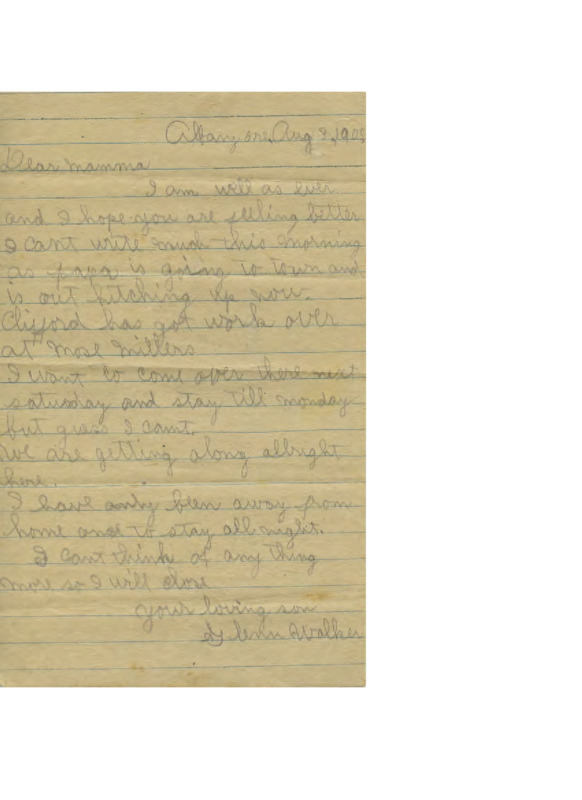 Albany ore. Aug 9, 190
Dear mamma
I am well as ever
and I hope you are feeling better
I cant write much this morning
as papa is going to town and
is out hitching up now.
Clifford has got work over
at Mose Millers
I want to come over there next
saturday and stay till monday
but guess I cant.
we are getting along allright
here.
I have only been away from
home once to stay all night.
I cant think of any thing
more so I will close
your loving son
Glenn Walker